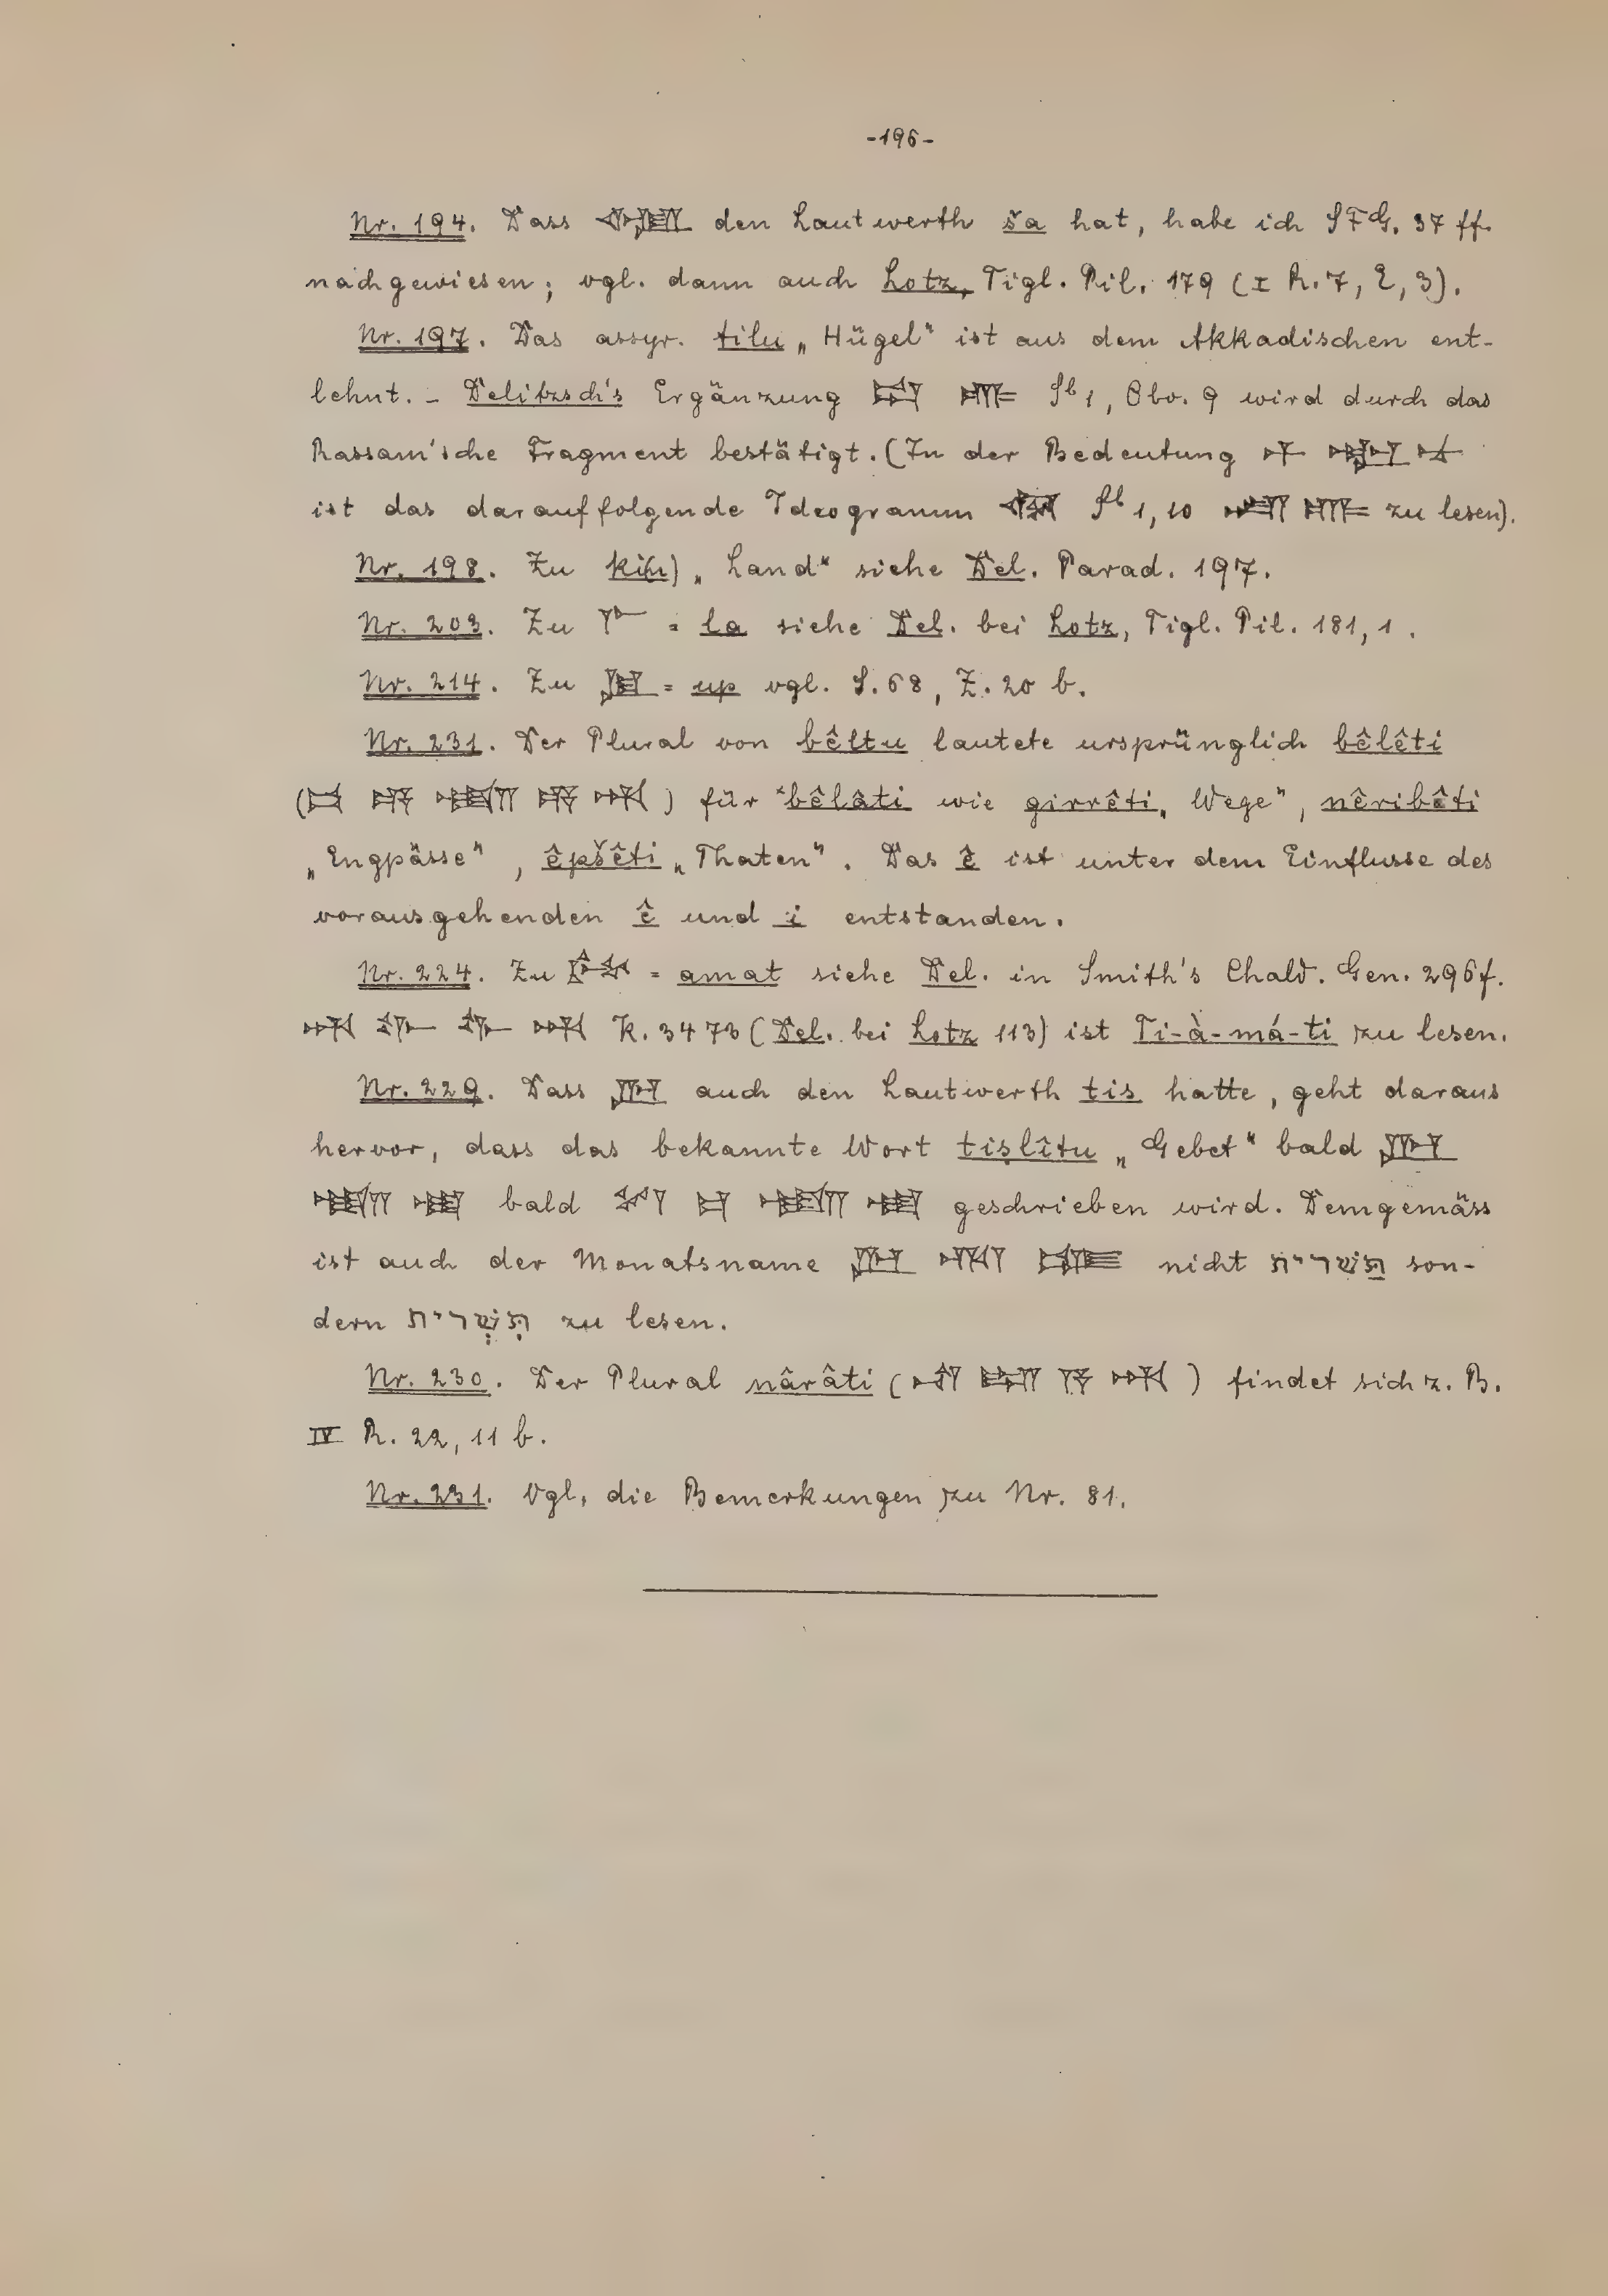 -196-
Nr. 194. Dass den Lautwerth ša hat, habe ich SFG. 37 ff.
nachgewiesen; vgl. dann auch Lotz, Tigl. Pil. 179 (I R. 7, E, 3).
Nr. 197. Das assyr. tilu „Hügel“ ist aus dem Akkadischen ent-
lehnt. – Delitzsch's Ergänzung Sb 1, Obv. 9 wird durch das
Rassam'sche Fragment bestätigt. (In der Bedeutung
ist das darauffolgende Ideogramm Sb 1, 10 zu lesen).
Nr. 198. Zu ki(n) „Land“ siehe Del. Parad. 197.
Nr. 203. Zu = la siehe Del. bei Lotz, Tigl. Pil. 181, 1.
Nr. 214. Zu = up vgl. S. 68, Z. 20 b.
Nr. 231. Der Plural von bêltu lautete ursprünglich bêlêti
( ) für *bêlâti wie girrêti „Wege“, nêribêti
„Engpässe“, êpšêti „Thaten“. Das ê ist unter dem Einflusse des
vorausgehenden ê und i entstanden.
Nr. 224. Zu = amat siehe Del. in Smith's Chald. Gen. 296f.
K. 3473 (Del. bei Lotz 113) ist Ti-à-má-ti zu lesen.
Nr. 229. Dass auch den Lautwerth tis hatte, geht daraus
hervor, dass das bekannte Wort tiṣlîtu „Gebet“ bald
bald geschrieben wird. Demgemäss
ist auch der Monatsname nicht תַּשׁרית son-
dern תִּשְׁרית zu lesen.
Nr. 230. Der Plural nârâti ( ) findet sich z. B.
IV R. 22, 11 b.
Nr. 231. Vgl. die Bemerkungen zu Nr. 81.